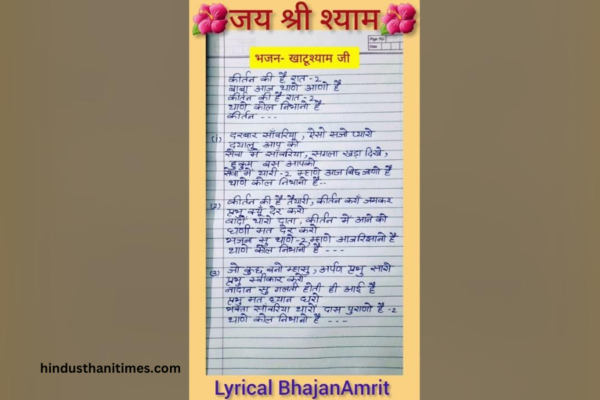 जय श्री श्याम
भजन- खाटूश्याम जी
Page No.
Date
कीर्तन की है रात -2
बाबा आज थाणे आणो है
कीर्तन की है रात -2
थाणे कोल निभानो है
कीर्तन ---
(1) दरबार साँवरिया, ऐसो सजो प्यारो
दयालु आप को
सेवा में साँवरिया, सगला खड़ा दिखे,
हुकुम बस आपको
सेवा में थारी -2 म्हाणे आज बिछ जाणो है
थाणे कोल निभानो है --
(2) कीर्तन की है तैयारी, कीर्तन कराँ जमकर
प्रभु क्यूँ देर करो
वादो थारो दाता, कीर्तन में आने को
घणी मत देर करो
भजन सु थाणे -2 म्हाणे आज रिझानो है
थाणे कोल निभानो है ---
(3) जो कुछ बनो म्हासु, अर्पण प्रभु सारो
प्रभु स्वीकार करो
नादान सु गलती होती ही आई है
प्रभु मत ध्यान धरो
भक्ता साँवरिया थारो दास पुराणो है -2
थाणे कोल निभानो है ---
hindusthanitimes.com
Lyrical BhajanAmrit